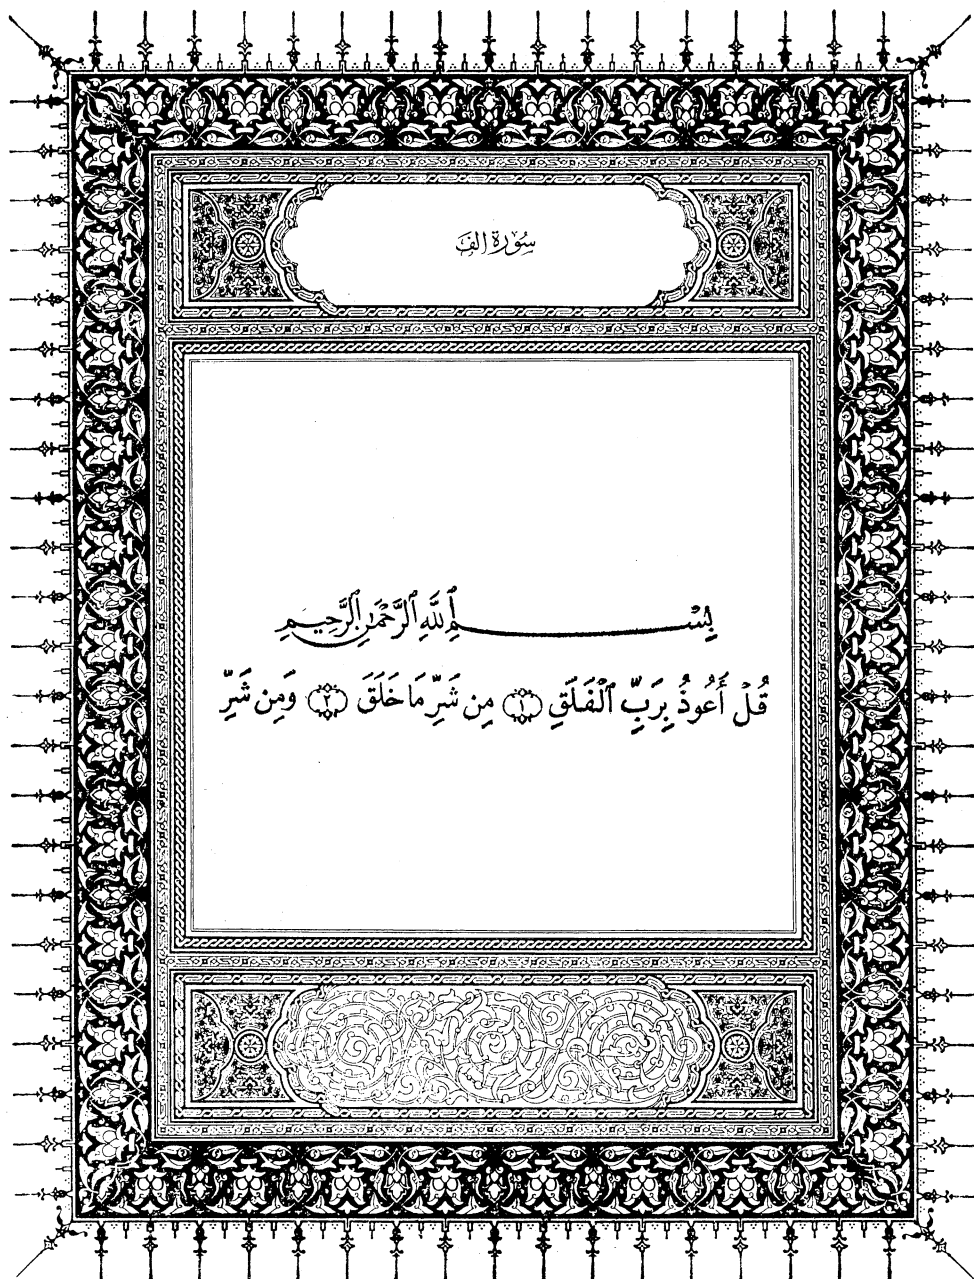 سُورَة الفَ
بِسْمِ ٱللَّهِ ٱلرَّحْمَٰنِ ٱلرَّحِيمِ
قُلْ أَعُوذُ بِرَبِّ ٱلْفَلَقِ ١ مِن شَرِّ مَا خَلَقَ ٢ وَمِن شَرِّ